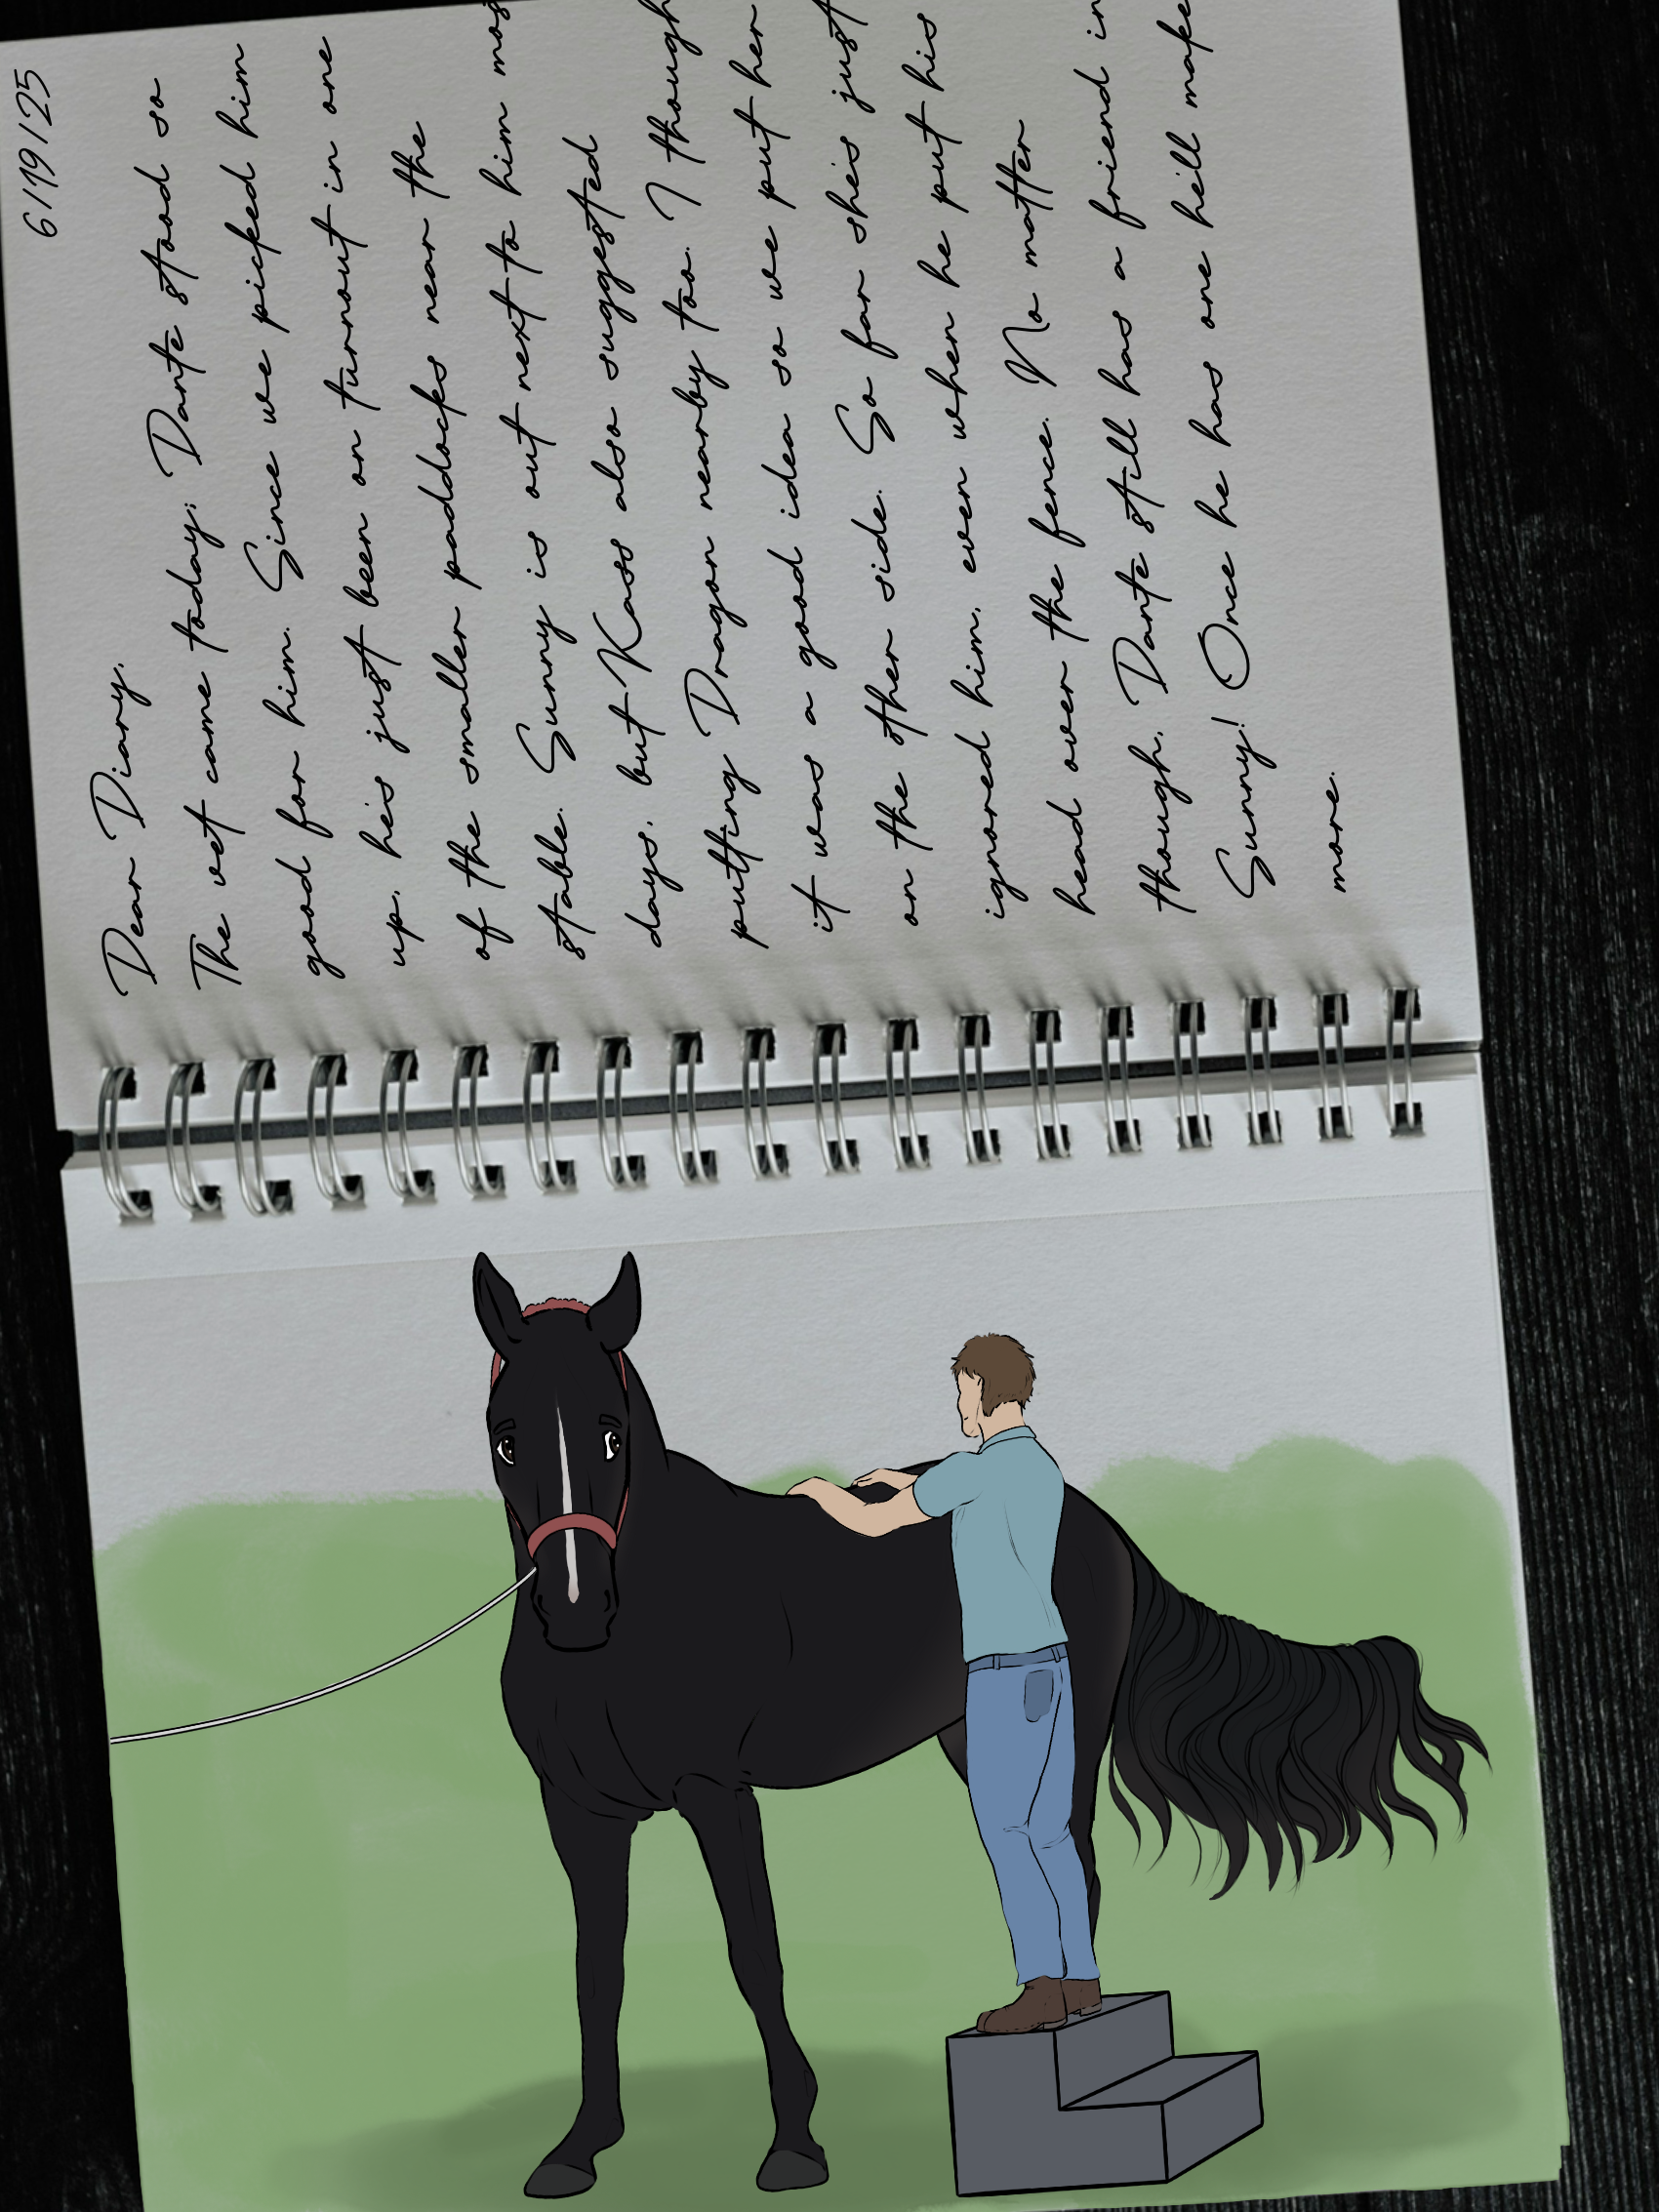 6/19/25
Dear Diary,
The vet came today; Dante stood so
good for him. Since we picked him
up, he's just been on turnout in one
of the smaller paddocks near the
stable. Sunny is out next to him most
days, but Kass also suggested
putting Dragon nearby too. I though
it was a good idea so we put her
on the other side. So far she's just
ignored him, even when he put his
head over the fence. No matter
though, Dante still has a friend in
Sunny! Once he has one he'll make
more.